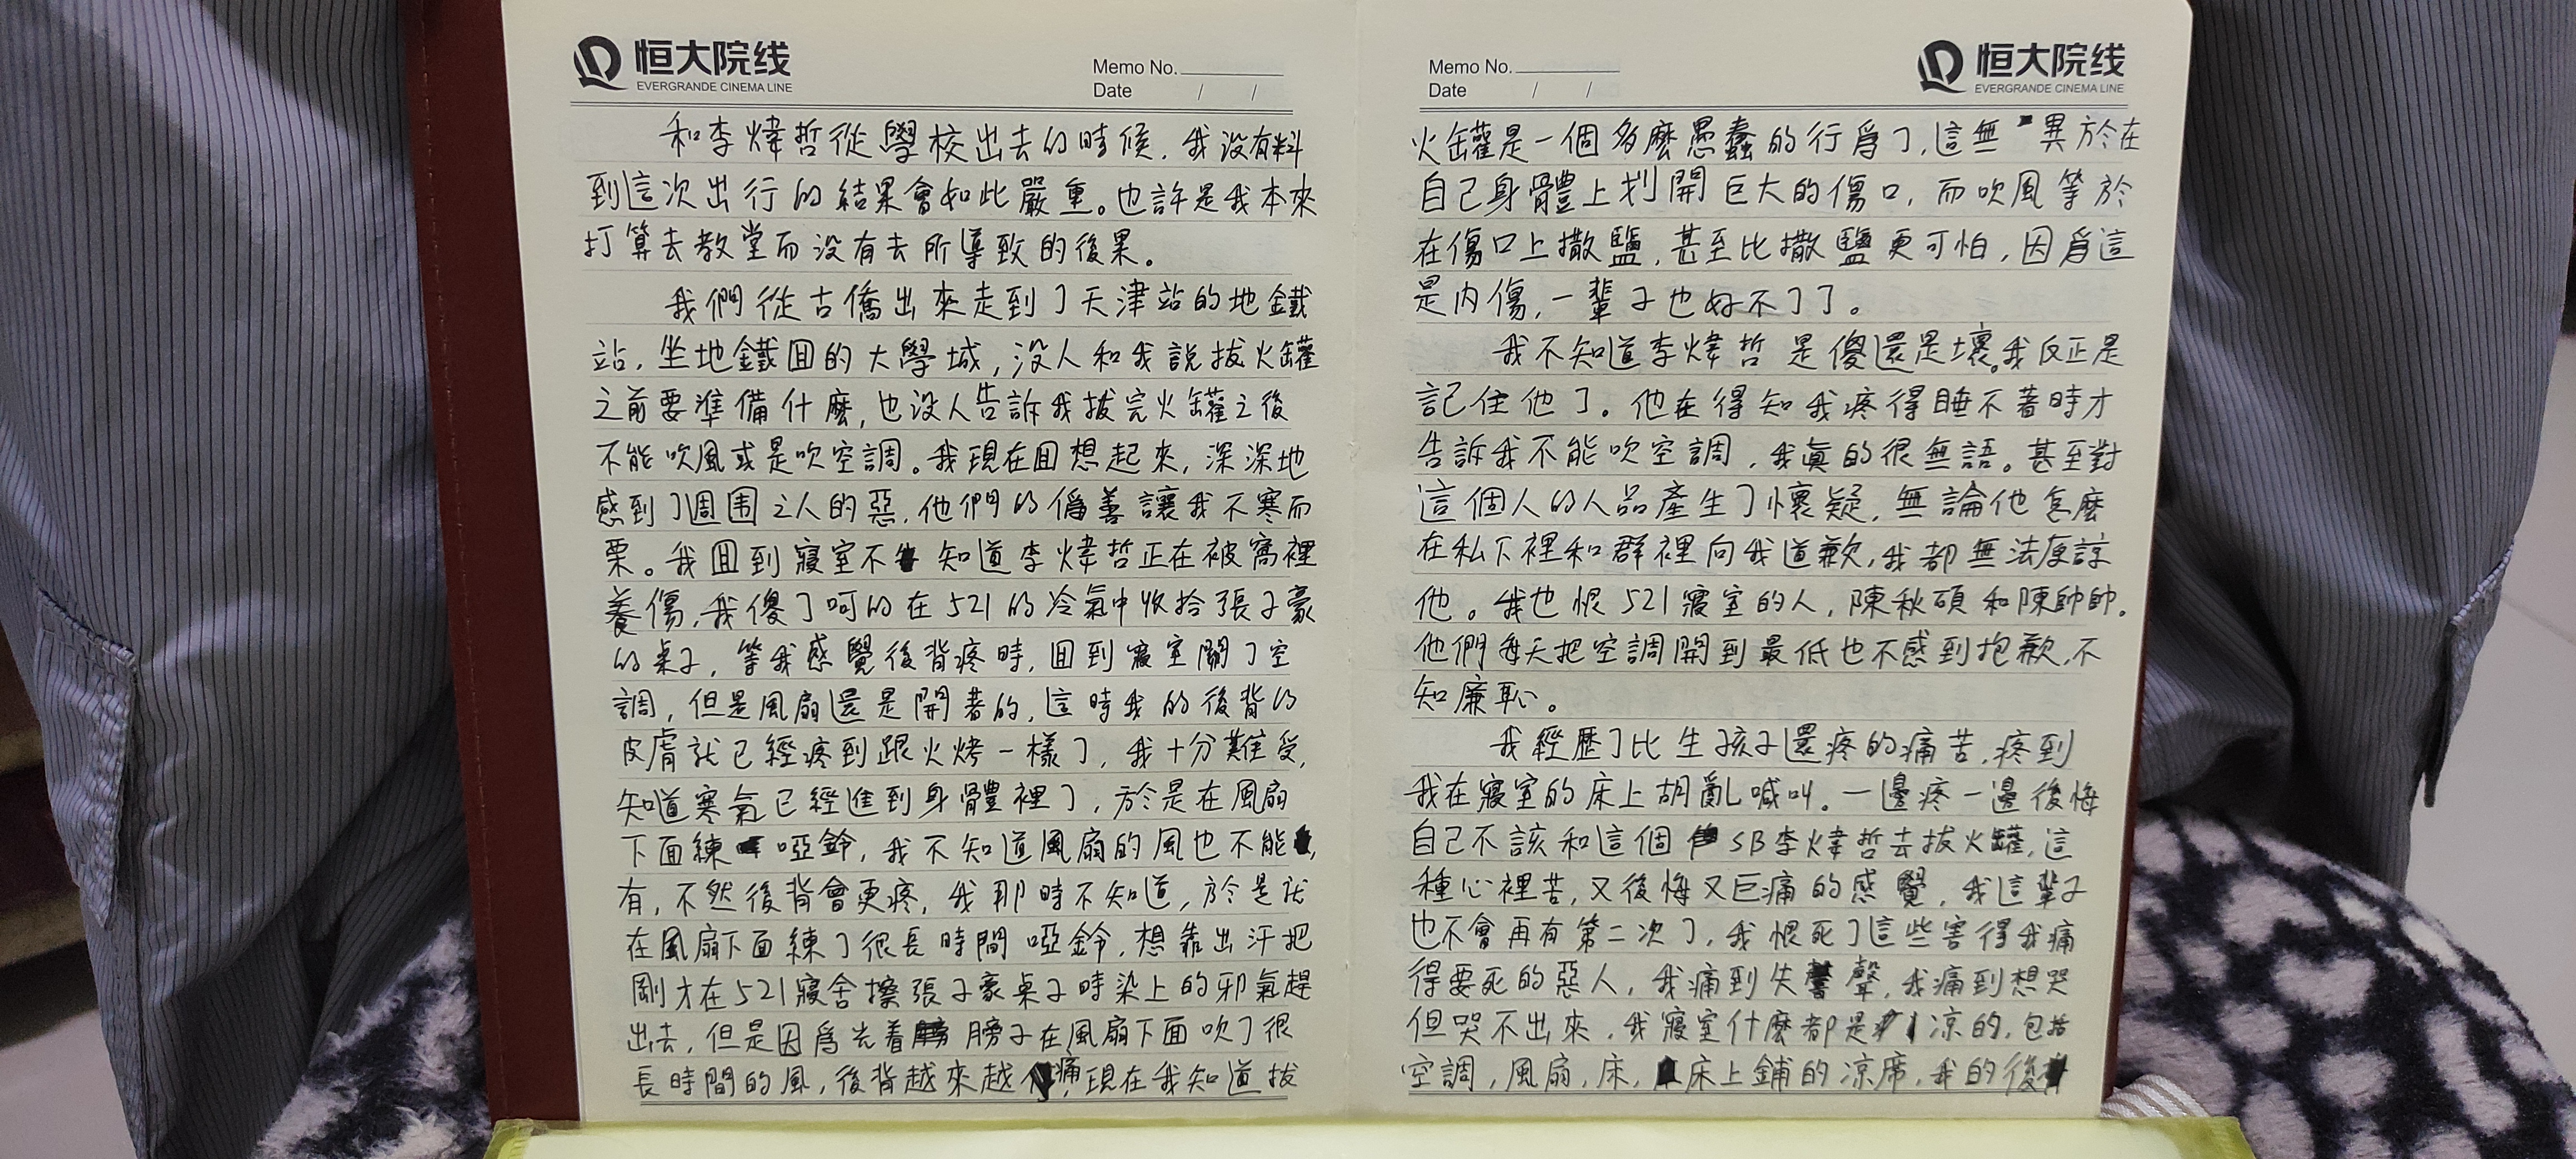 恒大院线
EVERGRANDE CINEMA LINE
Memo No.
Date / /
和李煒哲從學校出去的時候，我没有料
到這次出行的結果會如此嚴重。也許是我本來
打算去教堂而没有去所導致的後果。
我們從古僑出來走到了天津站的地鐵
站，坐地鐵囬的大學城，没人和我説拔火罐
之前要準備什麽，也没人告訴我拔完火罐之後
不能吹風或是吹空調。我現在囬想起來，深深地
感到了周围之人的惡，他們的僞善讓我不寒而
栗。我囬到寢室不知道李煒哲正在被窩裡
養傷，我傻了呵的在521的冷氣中收拾張子豪
的桌子，等我感覺後背疼時，囬到寢室關了空
調，但是風扇還是開著的，這時我的後背的
皮膚就已經疼到跟火烤一樣了，我十分難受，
知道寒氣已經進到身體裡了，於是在風扇
下面練啞鈴，我不知道風扇的風也不能，
有，不然後背會更疼，我那時不知道，於是就
在風扇下面練了很長時間啞鈴，想靠出汗把
剛才在521寢舍擦張子豪桌子時染上的邪氣趕
出去，但是因爲光着膀子在風扇下面吹了很
長時間的風，後背越來越痛，現在我知道拔
Memo No.
Date / /
恒大院线
EVERGRANDE CINEMA LINE
火罐是一個多麽愚蠢的行爲了，這無異於在
自己身體上划開巨大的傷口，而吹風等於
在傷口上撒鹽，甚至比撒鹽更可怕，因爲這
是内傷，一輩子也好不了了。
我不知道李煒哲是傻還是壞。我反正是
記住他了。他在得知我疼得睡不著時才
告訴我不能吹空調，我眞的很無語。甚至對
這個人的人品產生了懷疑，無論他怎麽
在私下裡和群裡向我道歉，我都無法原諒
他。我也恨521寢室的人，陳秋碩和陳帥帥。
他們每天把空調開到最低也不感到抱歉，不
知廉恥。
我經歷了比生孩子還疼的痛苦，疼到
我在寢室的床上胡亂喊叫。一邊疼一邊後悔
自己不該和這個SB李煒哲去拔火罐，這
種心裡苦，又後悔又巨痛的感覺，我這輩子
也不會再有第二次了，我恨死了這些害得我痛
得要死的惡人，我痛到失聲，我痛到想哭
但哭不出來，我寢室什麽都是凉的，包括
空調，風扇，床，床上鋪的凉席，我的後